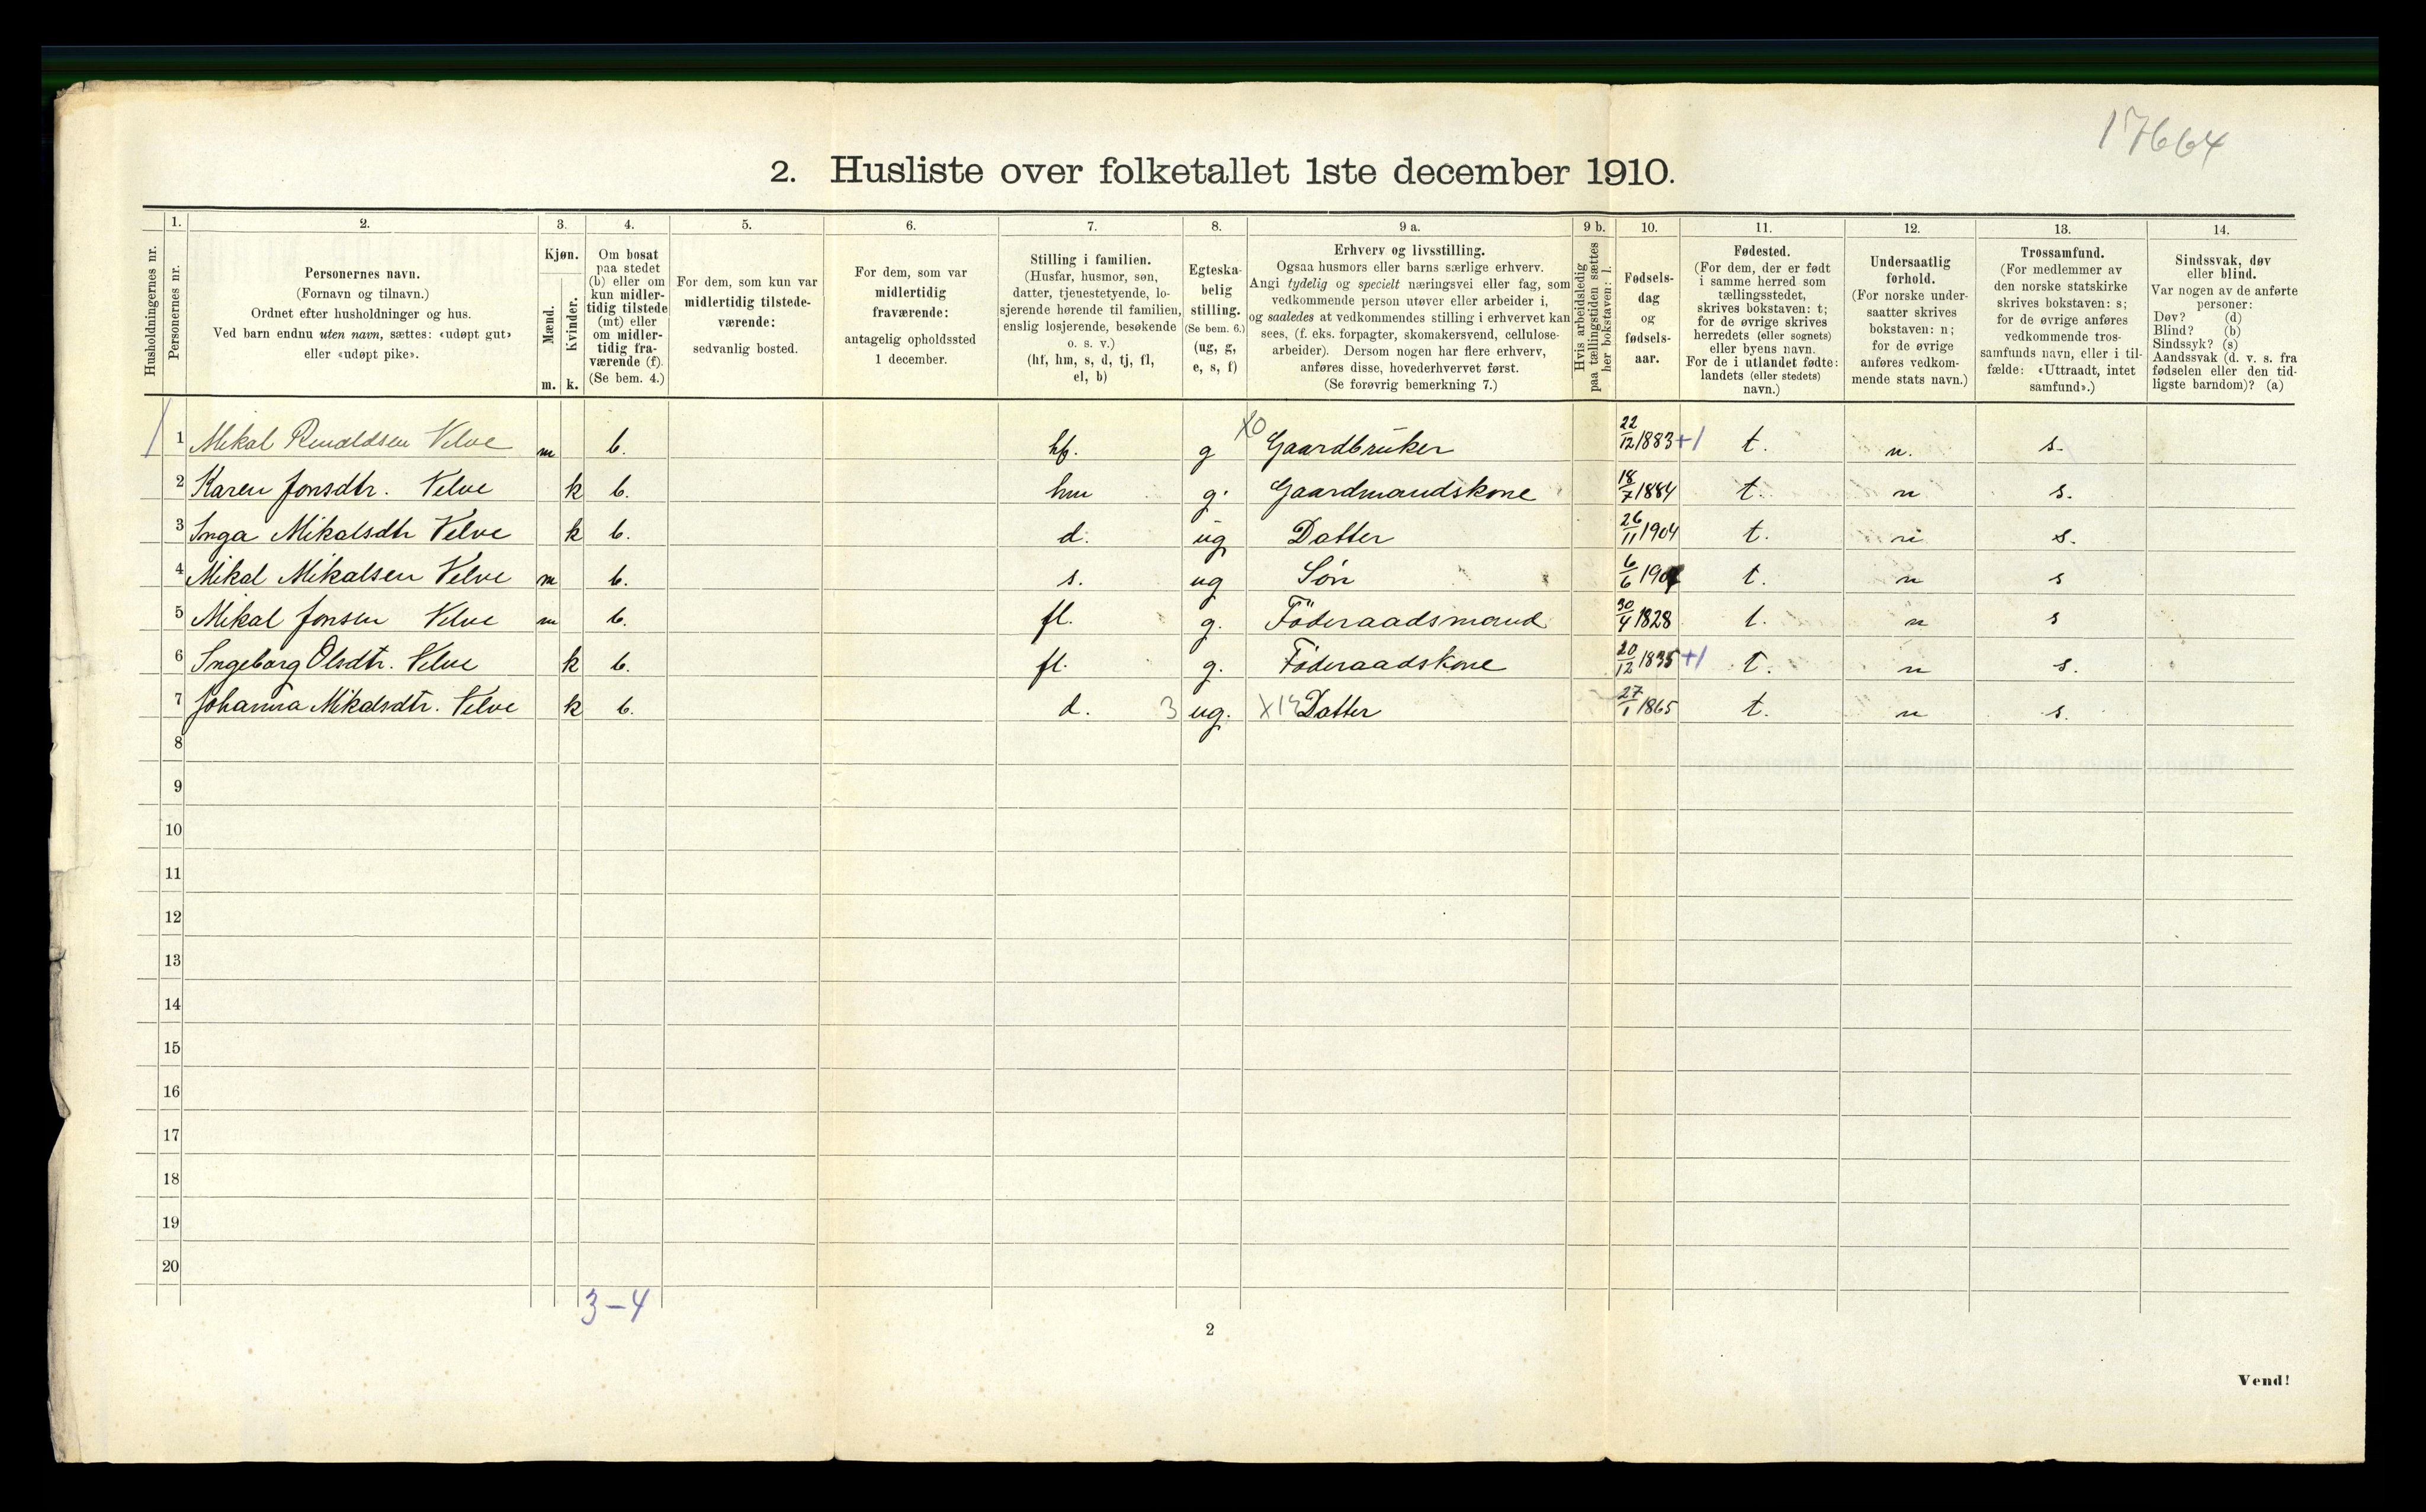 17664
2. Husliste over folketallet 1ste december 1910.
Husholdningernes nr.
1. Personernes nr.
2. Personernes navn. (Fornavn og tilnavn.) Ordnet efter husholdninger og hus. Ved barn endnu uten navn, sættes: «udøpt gut» eller «udøpt pike».
3. Kjøn. Mænd. m. Kvinder. k.
4. Om bosat paa stedet (b) eller om kun midlertidig tilstede (mt) eller om midlertidig fraværende (f). (Se bem. 4.)
5. For dem, som kun var midlertidig tilstedeværende: sedvanlig bosted.
6. For dem, som var midlertidig fraværende: antagelig opholdssted 1 december.
7. Stilling i familien. (Husfar, husmor, søn, datter, tjenestetyende, losjerende hørende til familien, enslig losjerende, besøkende o. s. v.) (hf, hm, s, d, tj, fl, el, b)
8. Egteskabelig stilling. (Se bem. 6.) (ug, g, e, s, f)
9 a. Erhverv og livsstilling. Ogsaa husmors eller barns særlige erhverv. Angi tydelig og specielt næringsvei eller fag, som vedkommende person utøver eller arbeider i, og saaledes at vedkommendes stilling i erhvervet kan sees, (f. eks. forpagter, skomakersvend, cellulose-arbeider). Dersom nogen har flere erhverv, anføres disse, hovederhvervet først. (Se forøvrig bemerkning 7.)
9 b. Hvis arbeidsledig paa tællingstiden sættes her bokstaven: l.
10. Fødselsdag og fødselsaar.
11. Fødested. (For dem, der er født i samme herred som tællingsstedet, skrives bokstaven: t; for de øvrige skrives herredets (eller sognets) eller byens navn. For de i utlandet fødte: landets (eller stedets) navn.)
12. Undersaatlig forhold. (For norske undersaatter skrives bokstaven: n; for de øvrige anføres vedkommende stats navn.)
13. Trossamfund. (For medlemmer av den norske statskirke skrives bokstaven: s; for de øvrige anføres vedkommende trossamfunds navn, eller i tilfælde: «Uttraadt, intet samfund».)
14. Sindssvak, døv eller blind. Var nogen av de anførte personer: Døv? (d) Blind? (b) Sindssyk? (s) Aandssvak (d. v. s. fra fødselen eller den tidligste barndom)? (a)
1 Mikal Rinaldsen Velve m b. hf. g X0 Gaardbruker 22/12 1883 +1 t. n. s.
2 Karen Jonsdtr. Velve k b. hm g. Gaardmandskone 18/7 1884 t. n s.
3 Inga Mikalsdtr Velve k b. d. ug Datter 26/11 1904 t. n s.
4 Mikal Mikalsen Velve m b. s. ug Søn 6/6 190 t. n s
5 Mikal Jonsen Velve m b. fl. g. Föderaadsmand 30/4 1828 t. n s
6 Ingeborg Olsdtr. Velve k b. fl. g. Föderaadskone 20/12 1835 +1 t. n s.
7 Johanna Mikalsdtr. Velve k b. d. 3 ug. Datter 27/1 1865 t. n s.
8
9
10
11
12
13
14
15
16
17
18
19
20
3-4
2
Vend!